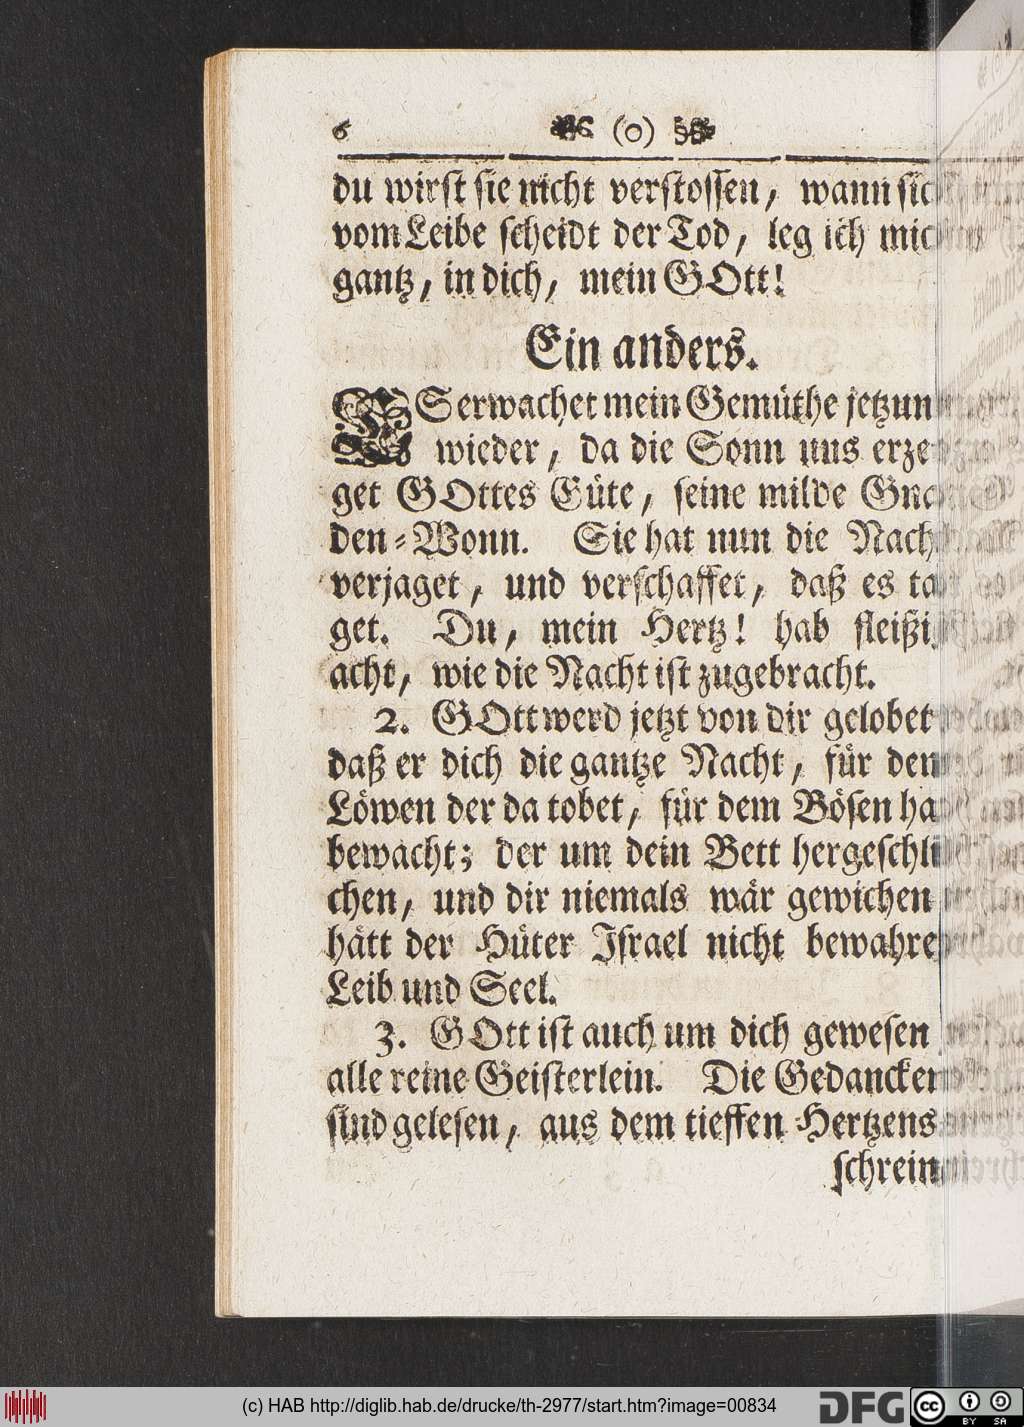 6 (o)
du wirst sie nicht verstossen, wann sic
vom Leibe scheidt der Tod, leg ich mic
gantz, in dich, mein GOtt!
Ein anders.
ES erwachet mein Gemüthe jetzun
wieder, da die Sonn uns erze
get GOttes Güte, seine milde Gna
den-Wonn. Sie hat nun die Nach
verjaget, und verschaffet, daß es ta
get. Du, mein Hertz! hab fleißi
acht, wie die Nacht ist zugebracht.
2. GOtt werd jetzt von dir gelobet
daß er dich die gantze Nacht, für den
Löwen der da tobet, für dem Bösen ha
bewacht; der um dein Bett hergeschli
chen, und dir niemals wär gewichen
hätt der Hüter Israel nicht bewahre
Leib und Seel.
3. GOtt ist auch um dich gewesen
alle reine Geisterlein. Die Gedancken
sind gelesen, aus dem tieffen Hertzens
schrein
(c) HAB http://diglib.hab.de/drucke/th-2977/start.htm?image=00834
DFG
cc BY SA